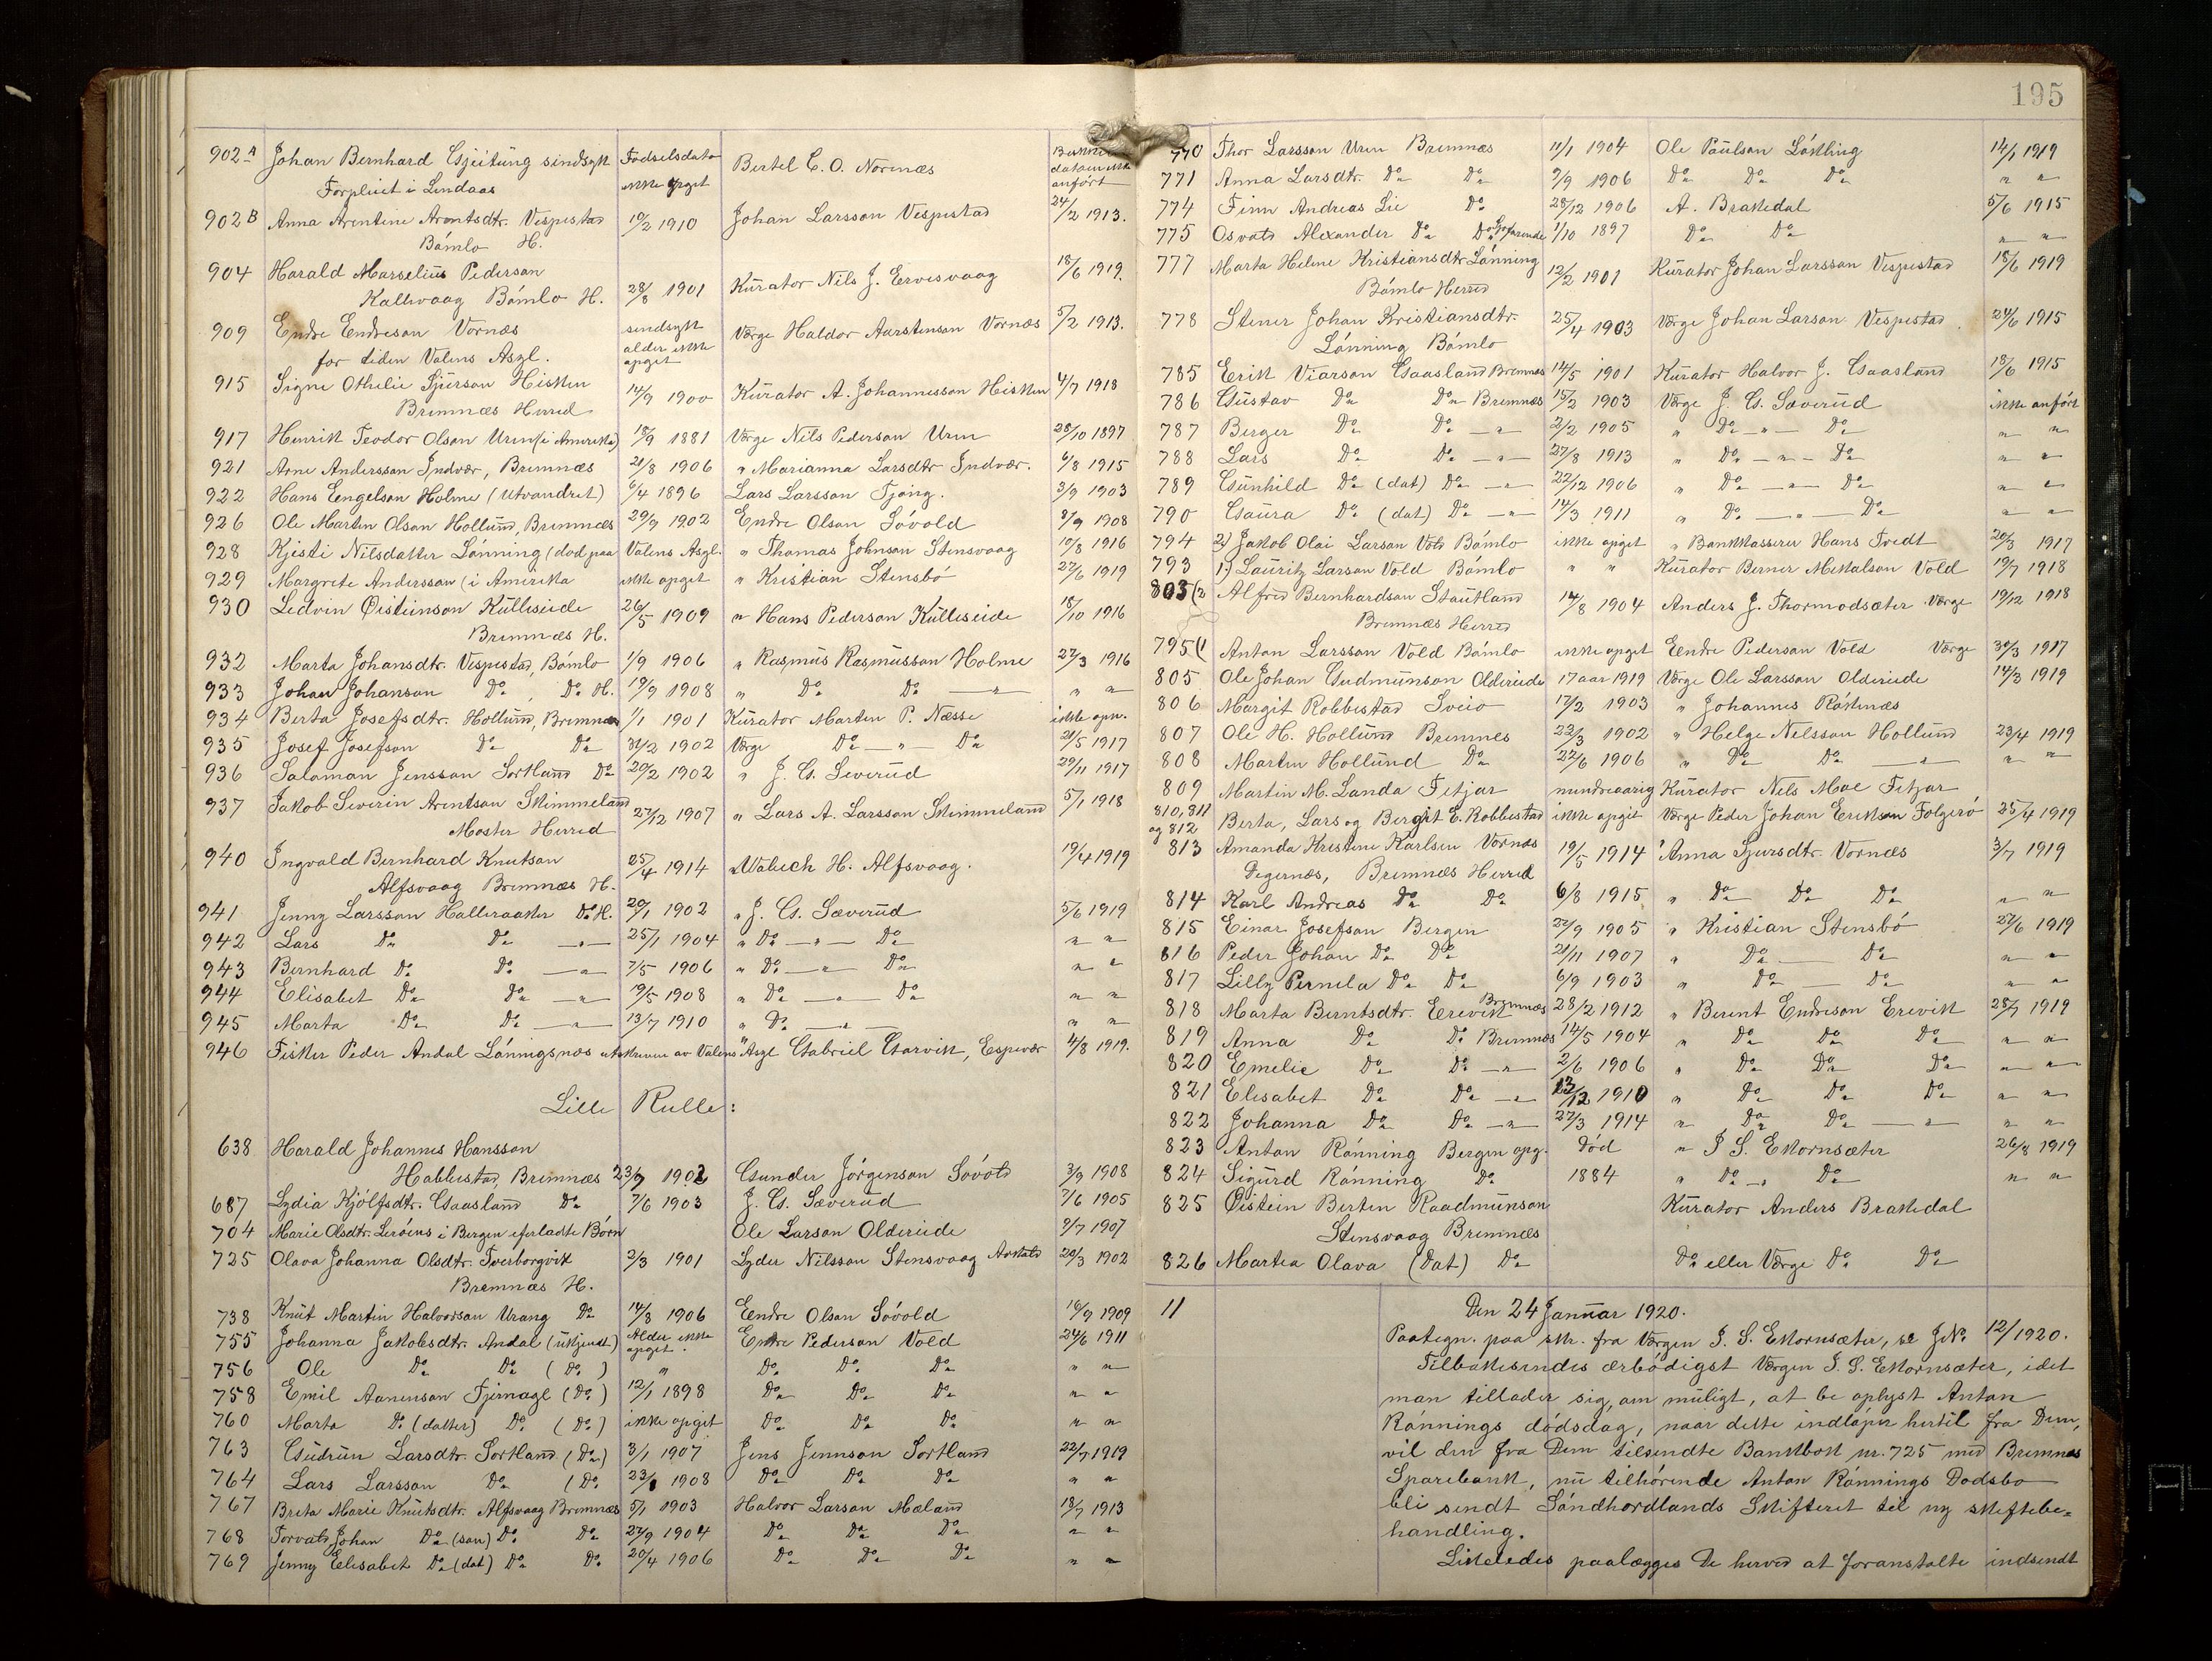 902A Johan Bernhard Gjeitung sindsyk Fødselsdato Bertel E. O. Nornæs
Forpleiet i Lindaas ikke opget anført
902B Anna Arentine Arentsdtr. Vespestad 10/2 1910 Johan Larsson Vespestad 24/2 1913.
Bømlo H.
904 Harald Marselius Pederson
Kallevaag Bømlo H. 28/8 1901 Kurator Nils J. Eervesvaag 18/6 1919.
909 Endre Endreson Vornæs sindsyk alder ikke opget Værge Haldor Aarstenson Vornæs 5/2 1913.
for tiden Valens Asyl.
915 Signe Othelie Sjurson Hisken 14/9 1900 Kurator A. Johannesson Hisken 4/7 1918
Bremnæs Herred
917 Henrik Teodor Olson Urm (i Amerika) 18/9 1881 Værge Nils Pederson Urm 28/10 1897
921 Arne Andersson Indvær, Bremnæs 21/8 1906 " Marianna Larsdtr Indvær. 6/8 1915
922 Hans Eengelson Holme (Utvandret) 6/4 1896 Lars Larsson Tjong. 3/9 1903
926 Ole Martin Olson Hollund, Bremnæs 29/9 1902 Endre Olson Søvold 8/9 1908
928 Kjesti Nilsdatter Lønning (død paa Valens Asyl. " Thomas Johnson Stensvaag 10/8 1916
929 Margrete Andersson (i Amerika ikke opget " Kristian Stensbø 27/6 1919
930 Ledvin Øisteinson Kulleseide 26/5 1909 " Hans Pederson Kulleseide 18/10 1916
Bremnæs H.
932 Marta Johansdtr. Vespestad, Bømlo 1/9 1906 " Rasmus Rasmusson Holme 27/3 1916
933 Johan Johanson Do Do H. 19/9 1908 " Do Do " " "
934 Berta Josefsdtr. Hollund, Bremnæs 1/1 1901 Kurator Martin P. Næsse ikke opn.
935 Josef Josefson Do Do 31/2 1902 Værge Do " Do 21/5 1917
936 Salaman Jensson Sortland Do 20/2 1902 " J. G. Severud 29/11 1917
937 Jakob Severin Arentson Skimmeland 27/12 1907 " Lars A. Larsson Skimmeland 5/1 1918
Moster Herred
940 Ingvald Bernhard Knutson 25/4 1914 " Waluch H. Alfsvaag. 19/4 1919
Alfsvaag Bremnæs H.
941 Jenny Larsson Halleraaker Do H. 20/1 1902 " J. G. Sæverud 5/6 1919
942 Lars Do Do " 25/1 1904 " Do " Do " "
943 Bernhard Do Do " 7/5 1906 " Do " Do " "
944 Elisabet Do Do " 19/5 1908 " Do " Do " "
945 Marta Do Do " 13/7 1910 " Do " " "
946 Fisker Peder Andal Lønningsnæs utskreven av Valens Asyl Gabriel Garvik, Espevær 4/8 1919.
Lille Rulle:
638 Harald Johannes Hansson
Habbestad, Bremnæs 23/9 1902 Gunder Jørgenson Søvold 3/9 1908
687 Lydia Kjølfsdtr. Gaasland Do 7/6 1903 J. G. Sæverud 7/6 1905
704 Marie Olsdtr. Lerøens i Bergen efterladte Børn Ole Larson Oldereide 9/7 1907
725 Olava Johanna Olsdtr. Tverborgvik 2/3 1901 Lyder Nilsson Stensvaag 20/3 1902
Bremnæs H.
738 Knut Martin Halvorson Urang Do 14/8 1906 Eendre Olson Søvold 16/9 1909
755 Johanna Jakobsdtr. Andal (ukjendt) Alder ikke opget. Endre Pederson Vold 24/6 1911
756 Ole Do Do (Do) " Do Do Do " "
758 Emil Aanenson Fjernagl (Do) 12/1 1898 Do Do Do " "
760 Marta Do (datter) Do (Do) ikke opget Do Do Do " "
763 Gudrun Larsdtr. Sortland (Do) 3/1 1907 Jens Jennson Sortland 22/7 1919
764 Lars Larsson Do (Do 23/8 1908 Do Do Do " "
767 Brita Marie Knutsdtr. Alfsvaag Bremnæs 5/1 1903 Halvor Larson Mæland 18/7 1913
768 Torvald Johan Do (søn) Do Do 27/9 1904 Do Do Do " "
769 Jenny Elisabet Do (dat) Do Do 20/4 1906 Do Do Do " "
195
770 Thor Larsson Urm Bremnæs 11/1 1904 Ole Paulson Løkling 14/1 1919
771 Anna Larsdtr. Do Do 9/9 1906 Do Do Do " "
774 Finn Andreas Lie Do 28/12 1906 A. Brakedal 5/6 1915
775 Osvald Alexander Do Do Sjøfarende 1/10 1897 Do Do " "
777 Marta Helene Kristiansdtr Lønning 12/2 1901 Kurator Johan Larsson Vespestad 18/6 1919
Bømlo Herred
778 Stener Johan Kristiansdtr. 25/4 1903 Værge Johan Larson Vespestad. 24/6 1915
Lønning Bømlo
785 Erik Viarson Gaasland Bremnæs 14/5 1901 Kurator Halvor J. Gaasland 18/6 1915
786 Gustav Do Do Bremnæs 15/2 1903 Værge J. G. Sæverud ikke anført
787 Berger Do Do " 2/2 1905 " Do " Do " "
788 Lars Do Do " 27/8 1913 " Do " Do " "
789 Gunhild Do (dat) Do " 22/12 1906 " Do " Do " "
790 Gaura Do (dat) Do " 14/3 1911 " Do " Do " "
794 2) Jakob Olai Larson Vold Bømlo ikke opget " Bankkasserer Hans Tvedt 20/3 1917
793 1) Lauritz Larson Vold Bømlo " " Kurator Berner Mikalson Vold 19/7 1918
803 (2 Alfred Bernhardson Stautland 14/8 1904 Anders J. Thormodsæter Værge 19/12 1918
Bremnæs Herred
795 (1 Anton Larsson Vold Bømlo ikke opget Eendre Pederson Vold Værge 30/3 1917
805 Ole Johan Gudmunson Oldereide 17 aar 1919 Værge Ole Larsson Oldereide 14/3 1919
806 Margit Robbestad Sveio 17/2 1903 " Johannes Røknæs
807 Ole H. Hollund Bremnes 22/3 1902 " Helge Nelsson Hollund 23/4 1919
808 Martin Hollund Do 22/6 1906 " Do Do " " "
809 Martin M. Landa Fitjar mindreaarig Kurator Nils Moe Fitjar
810, 811 og 812 Berta, Lars og Bergit E. Robbestad ikke opgit Værge Peder Johan Erikson Folgerø 25/4 1919
813 Amanda Kristine Karlsen Vornæs 19/5 1914 " Anna Sjursdtr. Vornæs 3/7 1919
Degernæs, Bremnæs Herred
814 Karl Andreas Do Do 6/8 1915 " Do Do Do " "
815 Einar Josefson Bergen 22/9 1905 " Kristian Stensbø 27/6 1919
816 Peder Johan Do Do 21/11 1907 " Do Do " "
817 Lilly Pernila Do Do 6/9 1903 " Do Do " "
818 Marta Berntsdtr. Erevik Bremnæs 28/2 1912 " Berent Endreson Erevik 28/7 1919
819 Anna Do Do Bremnes 14/5 1904 " Do Do Do " "
820 Emelie Do Do " 2/6 1906 " Do Do Do " "
821 Elisabet Do Do " 12/12 1910 " Do Do Do " "
822 Johanna Do Do " 27/3 1914 " Do Do " " "
823 Anton Rønning Bergen opg. død " I S. Ekornsæter 26/8 1919
824 Sigurd Rønning Do 1884 " Do " Do " "
825 Øistein Bertin Raadmunson Kurator Anders Brakedal
Stensvaag Bremnæs
826 Martea Olava (Dat) Do Do eller Værge Do Do
11 Den 24 Januar 1920.
Paategn. paa skr. fra Værgen I. S. Ekornsæter, se J.No. 12/1920.
Tilbakesendes ærbødigst Værgen I. S. Ekornsæter, idet
man tillader sig, om muligt, at be oplyst Anton
Rønnings dødsdag, naar dette indløper hertil fra Dem,
vil den fra Dem tilsendte Bankbok nr. 725 med Bremnæs
Sparebank, nu tilhørende Anton Rønnings Dødsbo
bli sendt Søndhordlands Skifteret til ny skiftebe=
handling.
Likeledes paalægges De herved at foranstalte indsendt